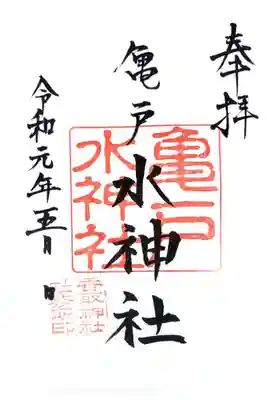 奉拝
亀戸水神社
令和元年五月 日
亀戸
水神社
香取神社